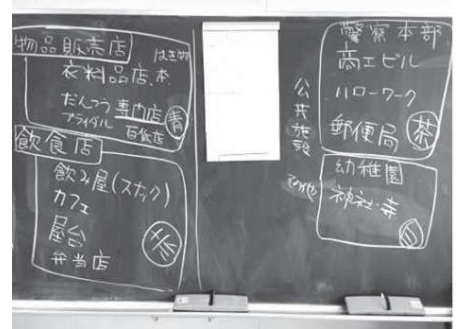 物品販売店
はき物
衣料品店、本
だんつう 専門店
ブライダル 百貨店
青
飲食店
飲み屋(スナック)
カフェ
屋台
弁当店
公共施設
警察本部
商工ビル
ハローワーク
郵便局
茶
幼稚園
神社・寺